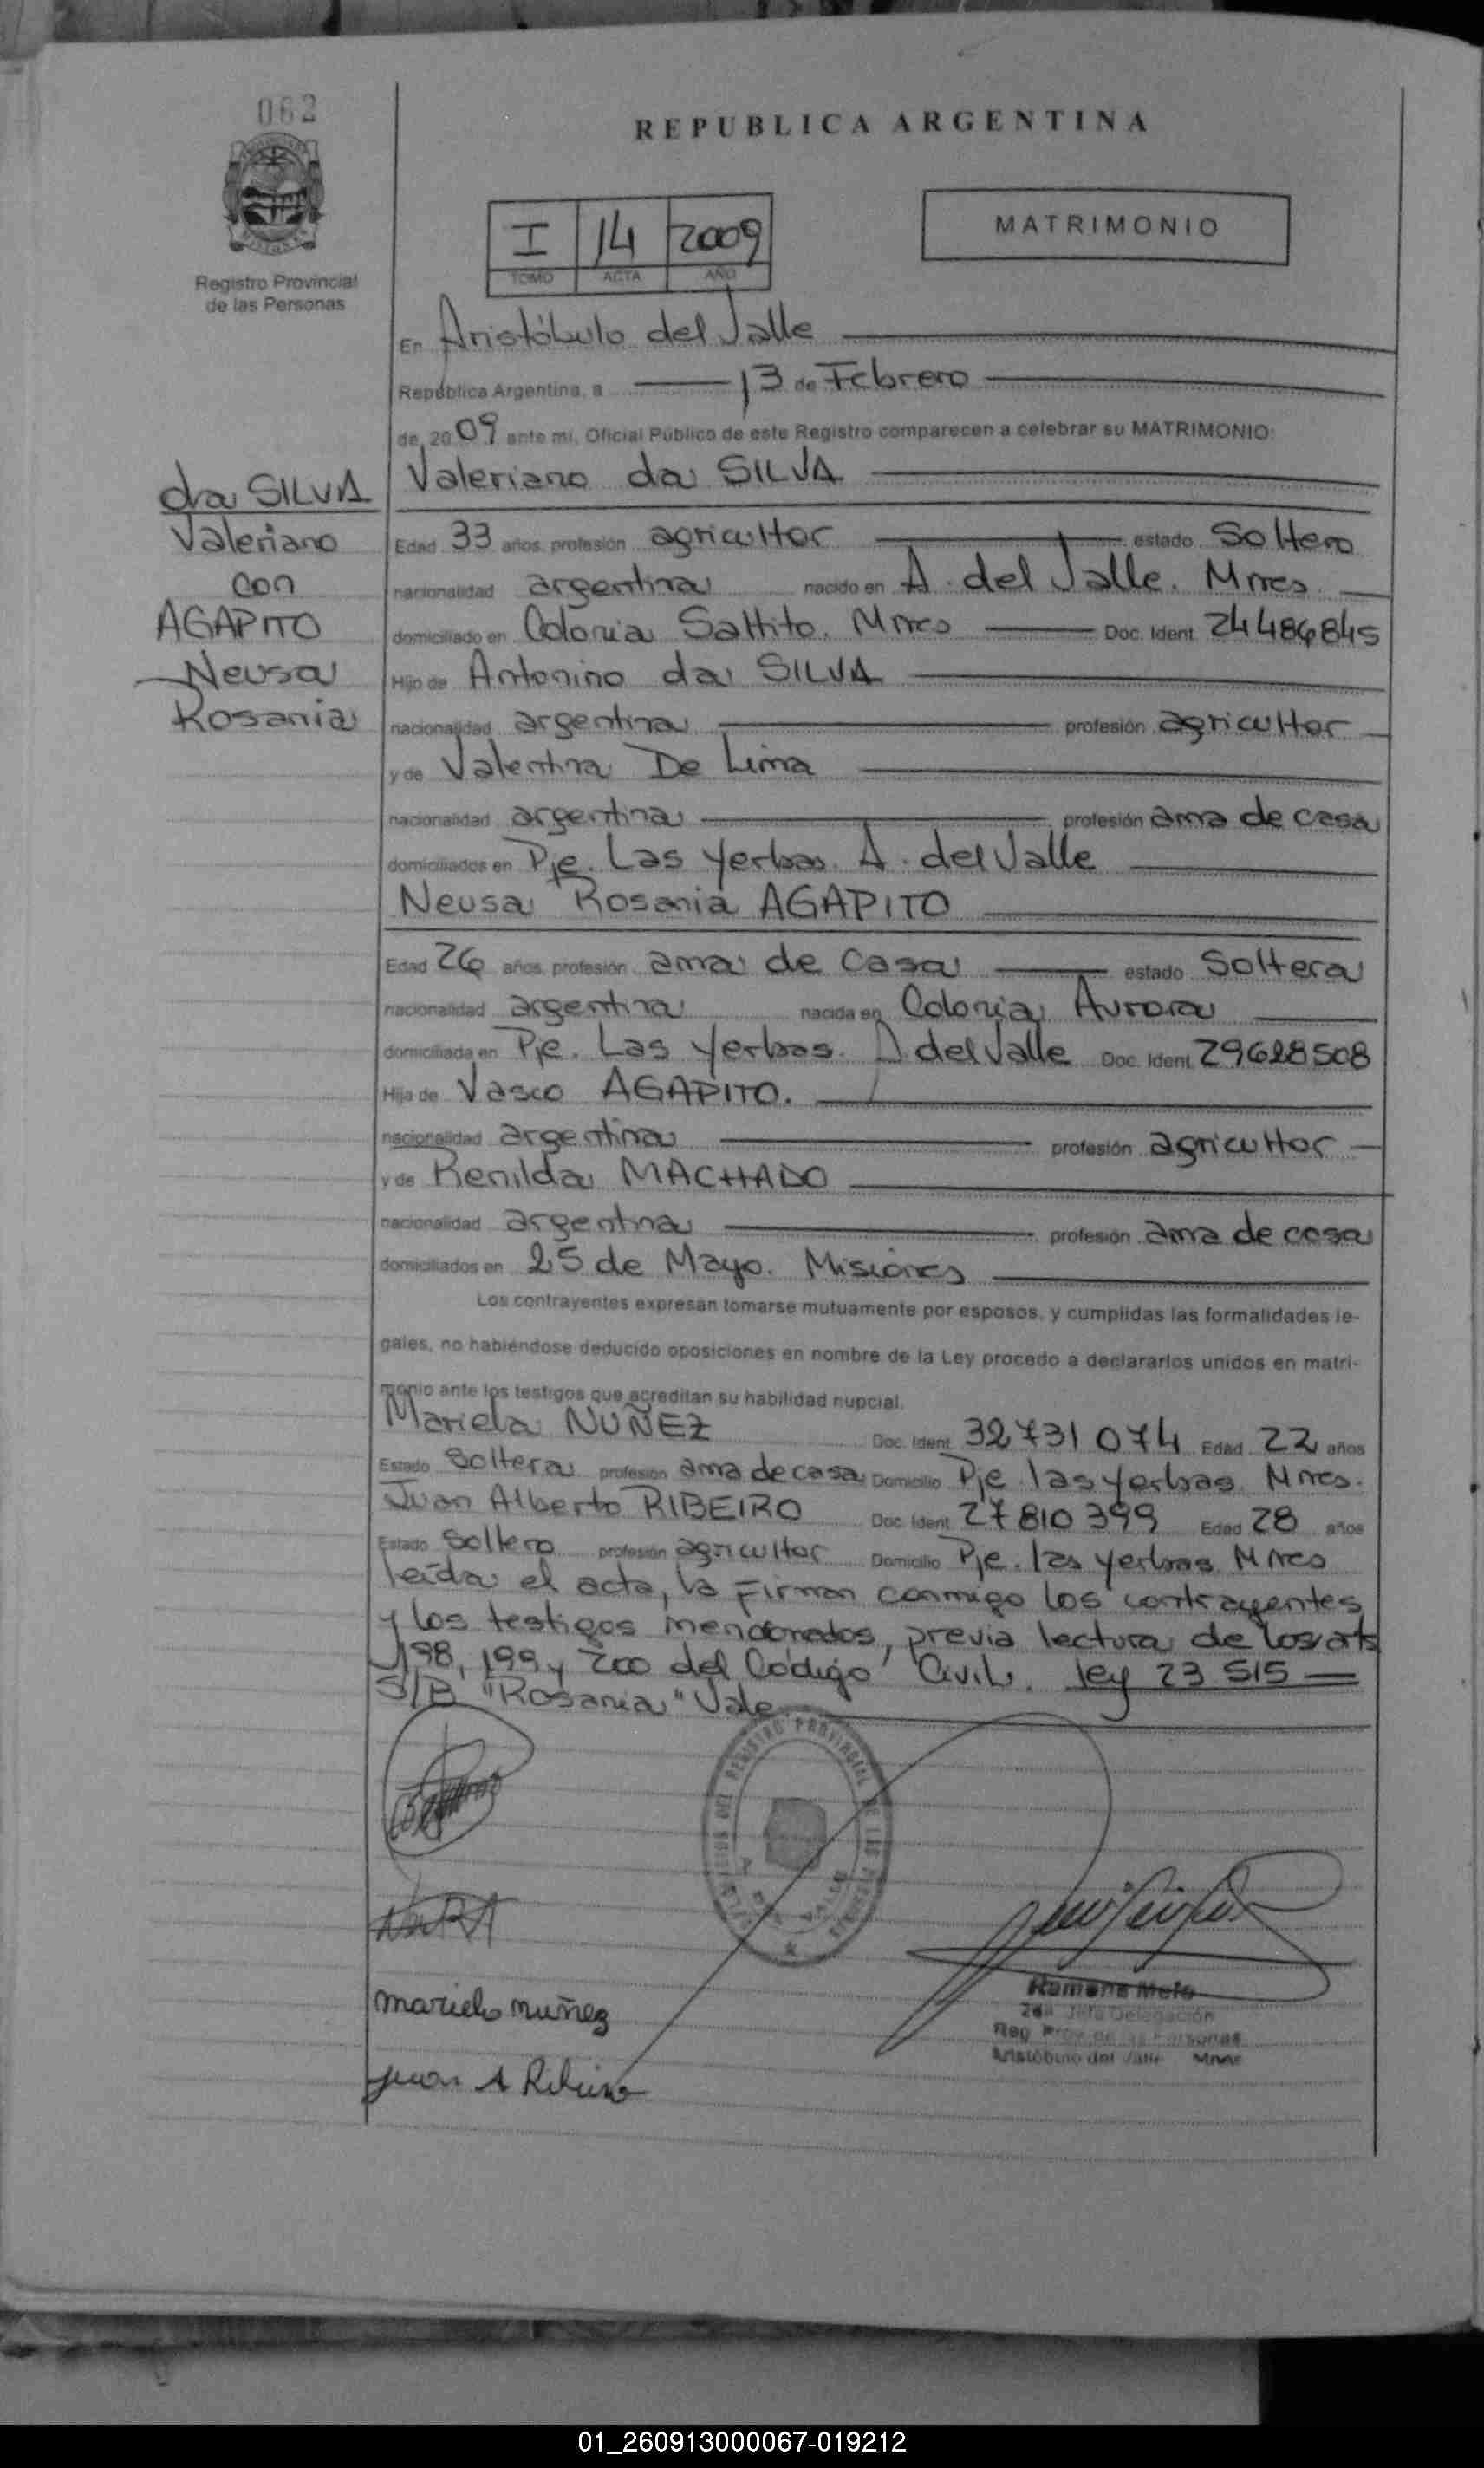 062
REPUBLICA ARGENTINA
I 14 2009
TOMO ACTA AÑO
MATRIMONIO
Registro Provincial
de las Personas
En Aristóbulo del Valle
República Argentina, a 13 de Febrero
de 2009 ante mi, Oficial Público de este Registro comparecen a celebrar su MATRIMONIO:
da SILVA
Valeriano
con
AGAPITO
Neusa
Rosania
Valeriano da SILVA
Edad 33 años profesión agricultor estado Soltero
nacionalidad argentina nacido en A. del Valle. Mnes
domiciliado en Colonia Saltito. Mnes Doc. Ident 24486845
Hijo de Antonino da SILVA
nacionalidad argentina profesión agricultor
y de Valentina De Lima
nacionalidad argentina profesión ama de casa
domiciliados en Pje. Las Yerbas. A. del Valle
Neusa Rosania AGAPITO
Edad 26 años profesión ama de casa estado Soltera
nacionalidad argentina nacida en Colonia Aurora
domiciliada en Pje. Las Yerbas. A. del Valle Doc. Ident 29628508
Hija de Vasco AGAPITO.
nacionalidad argentina profesión agricultor
y de Renilda MACHADO
nacionalidad argentina profesión ama de casa
domiciliados en 25 de Mayo. Misiones
Los contrayentes expresan tomarse mutuamente por esposos, y cumplidas las formalidades le-
gales, no habiéndose deducido oposiciones en nombre de la Ley procedo a declararlos unidos en matri-
monio ante los testigos que acreditan su habilidad nupcial.
Mariela NUÑEZ Doc. Ident 32731074 Edad 22 años
Estado Soltera profesión ama de casa Domicilio Pje las yerbas Mnes.
Juan Alberto RIBEIRO Doc. Ident 27810399 Edad 28 años
Estado Soltero profesión agricultor Domicilio Pje. las yerbas Mnes
leída el acta, la Firman conmigo los contrayentes
y los testigos mencionados, previa lectura de los arts
198, 199 y 200 del Código Civil. ley 23 515
S/B "Rosania" Vale
REGISTRO PROVINCIAL DE LAS PERSONAS
Mariela nuñez
Juan A Ribeiro
Ramona Melo
Jefa Delegación
Reg Prov de las Personas
Aristóbulo del Valle Mnes
01_260913000067-019212